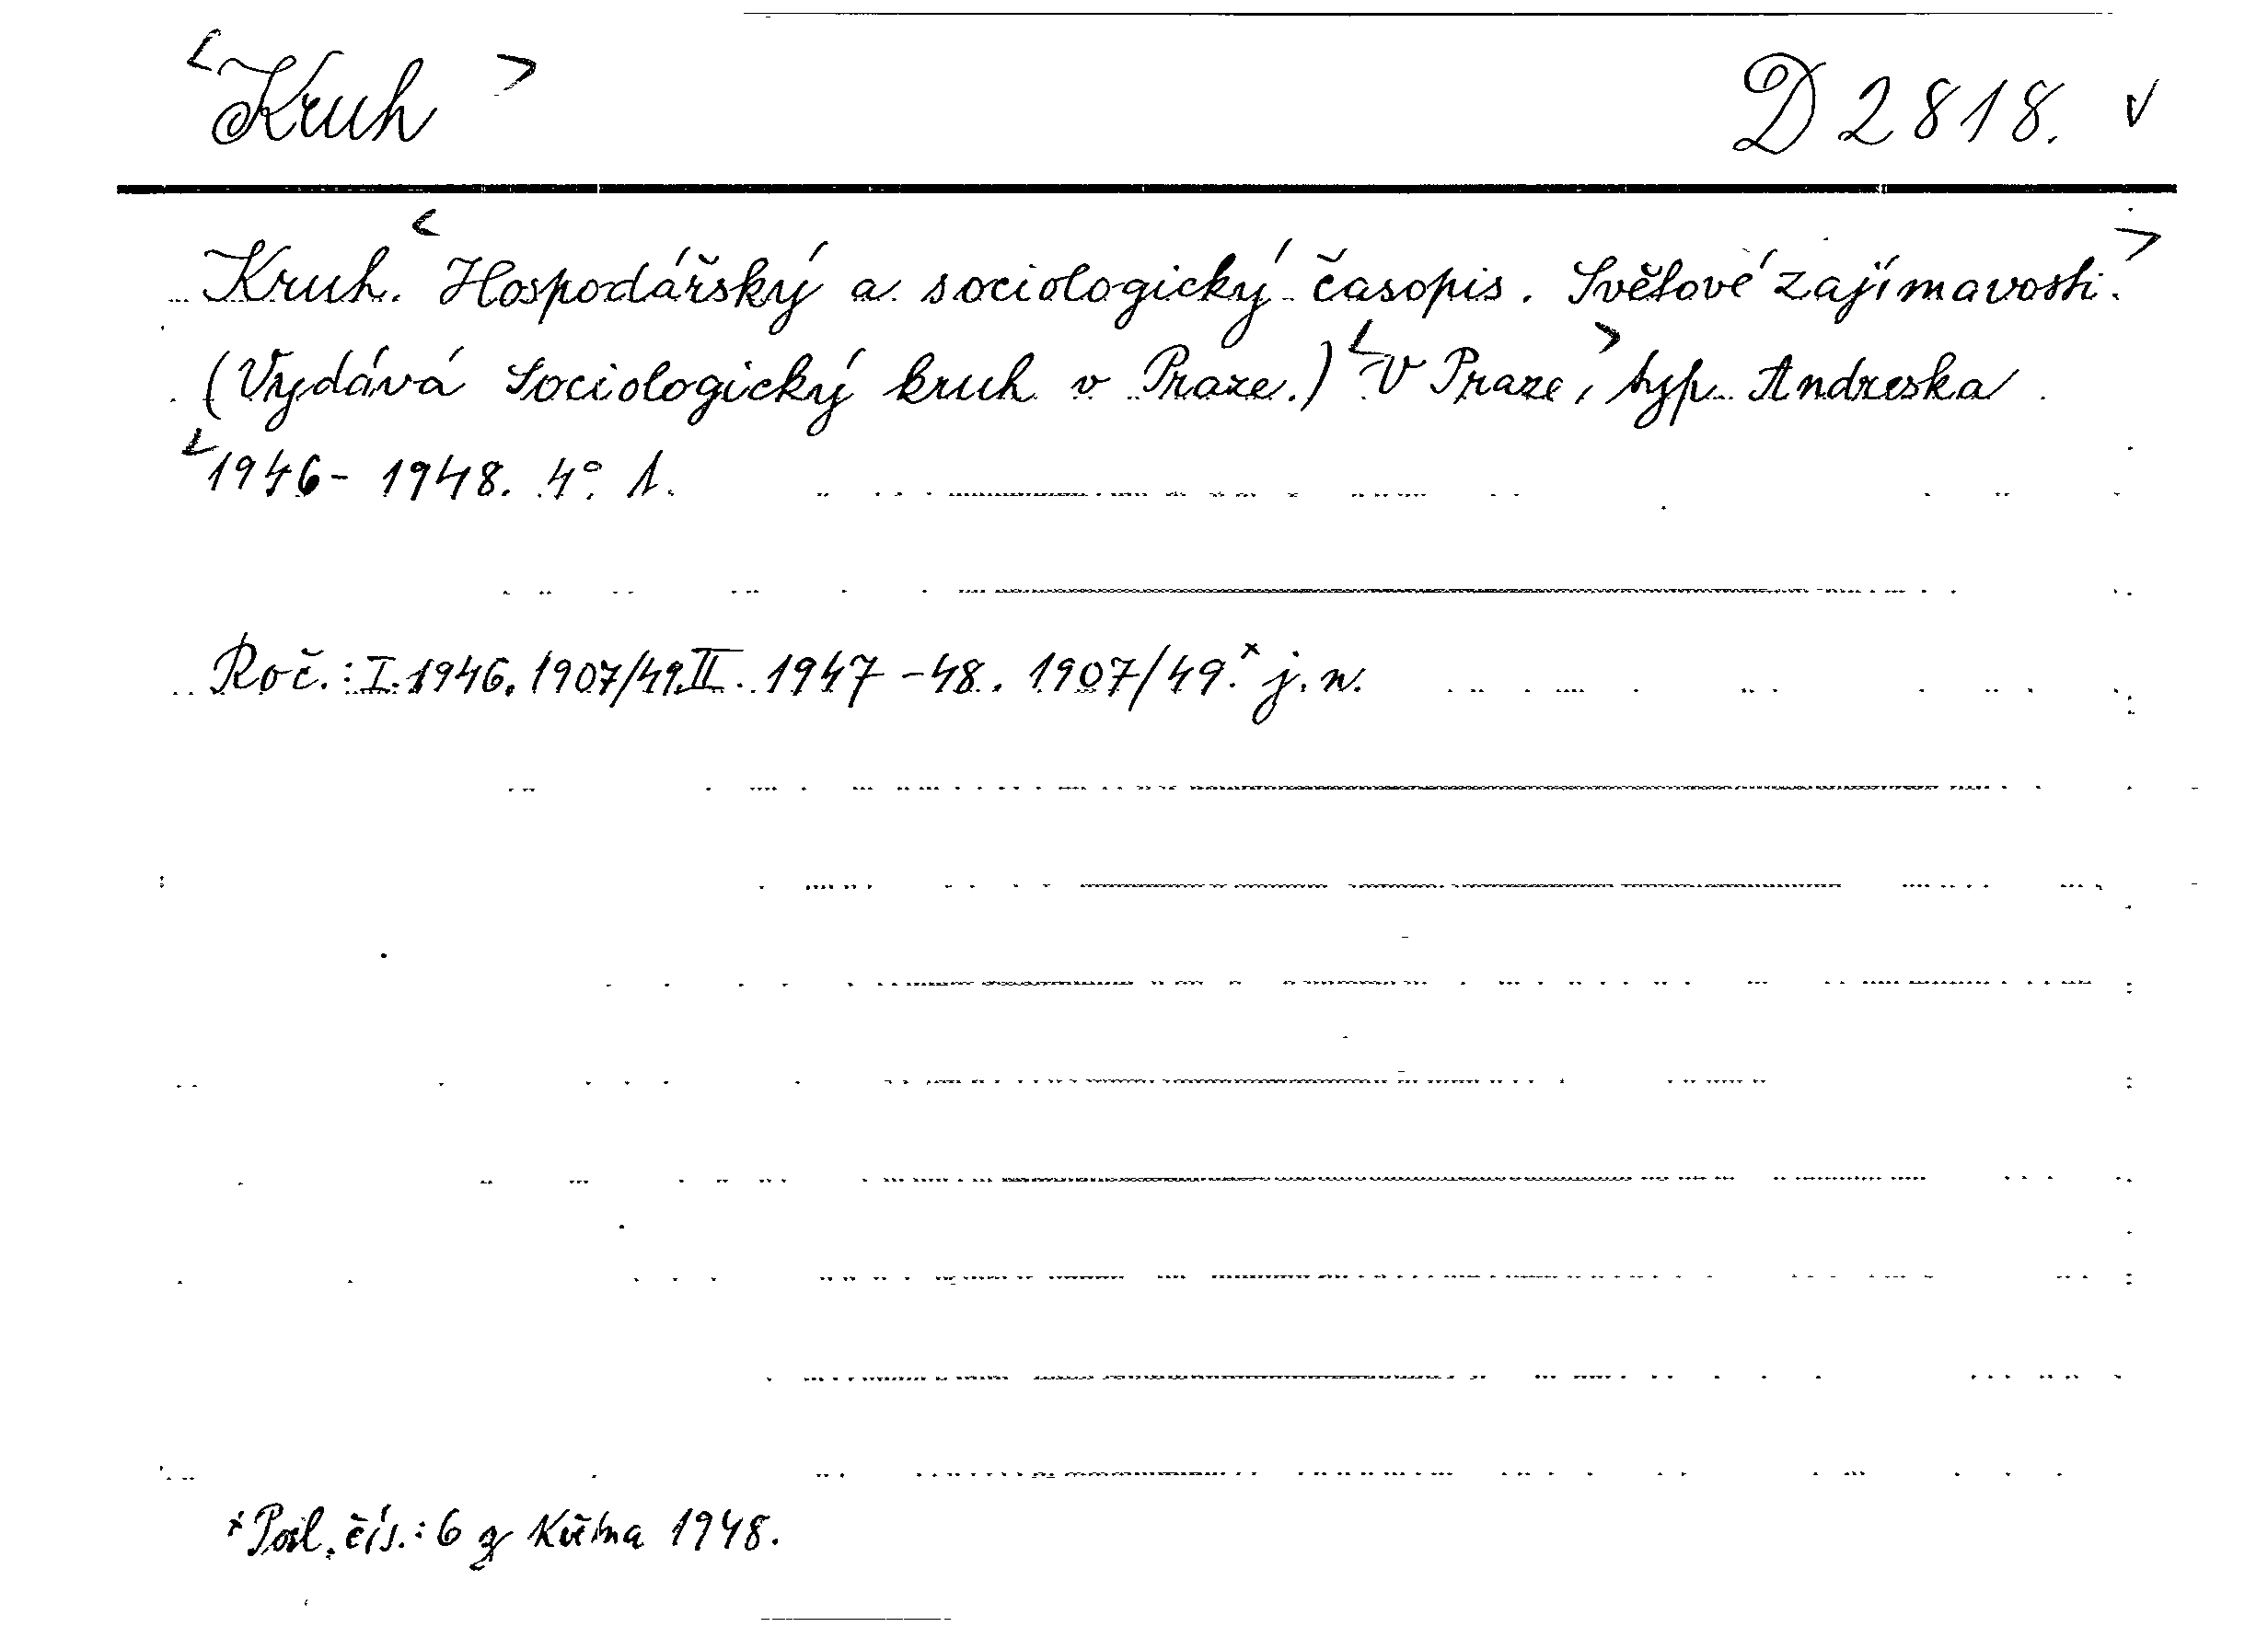 <Kruh> D 2818. √
Kruh. <Hospodářský a sociologický časopis. Světové zajímavosti.>
(Vydává Sociologický kruh v Praze.) <V Praze,> typ. Andreska
<1946-1948. 4°. 1.
Roč.: I. 1946. 1907/49. II. 1947-48. 1907/49.x j.n.
x Posl. čís.: 6 z května 1948.